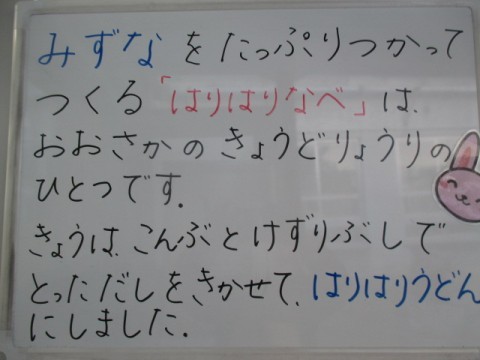 みずなをたっぷりつかって
つくる「はりはりなべ」は、
おおさかのきょうどりょうりの
ひとつです.
きょうは、こんぶとけずりぶしで
とっただしをきかせて、はりはりうどん
にしました.